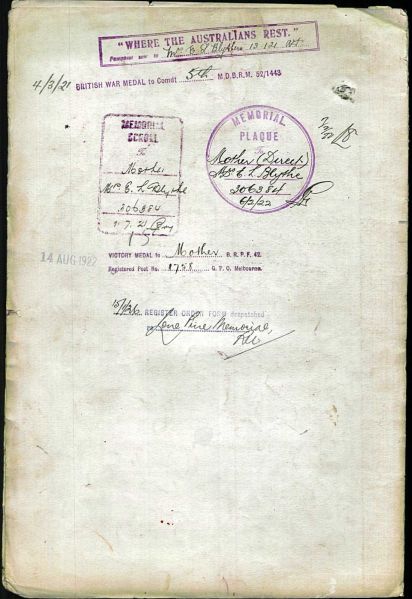 "WHERE THE AUSTRALIANS REST."
Pamphlet sent to Mrs E L Blythe 13 1 21
4/3/21 BRITISH WAR MEDAL to Comdt 5th M.D.B.R.M. 52/1443
MEMORIAL
SCROLL
To
Mother
Mrs E. L. Blythe
306384
1.7.21
MEMORIAL
PLAQUE
To
Mother (Direct)
Mrs E L Blythe
306384
6/2/22
14 AUG 1922
VICTORY MEDAL to Mother B.R.P.F. 42.
Registered Post No. 1758 G.P.O. Melbourne.
REGISTER ORDER FORM despatched
Lone Pine Memorial